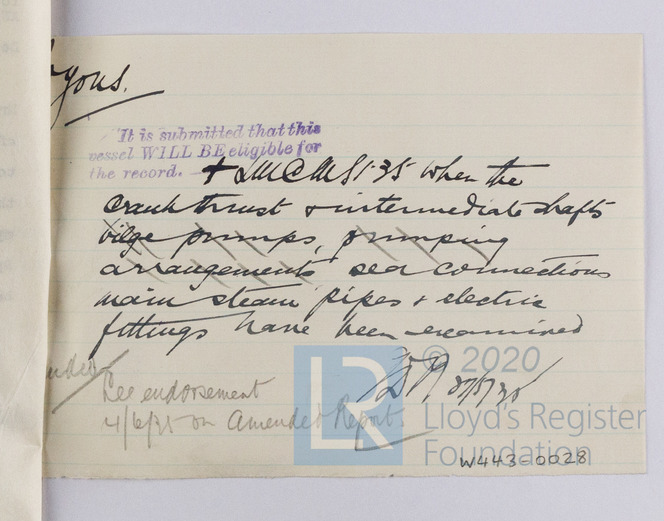 yons.
It is submitted that this
vessel WILL BE eligible for
the record. + LMCMS 5.35 when the
crank thrust & intermediate shafts
bilge pumps, pumping
arrangements sea connections
main steam pipes & electric
fittings have been examined
© 2020
See endorsement
4/6/35 on Amended Report
LR
Lloyd's Register
Foundation
W443-0028